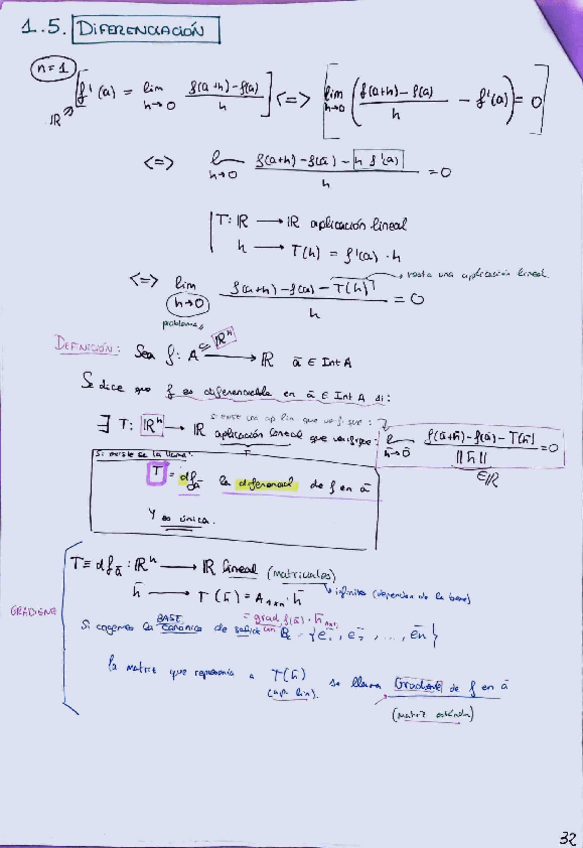 1.5. DIFERENCIACIÓN
n=1
f'(a) = lim h→0 f(a+h)-f(a) / h <=> lim h→0 ( f(a+h)-f(a) / h - f'(a) ) = 0
ℝ
<=> lim h→0 f(a+h)-f(a)-h f'(a) / h = 0
T: ℝ → ℝ aplicación lineal
h → T(h) = f'(a)·h
<=> lim h→0 f(a+h)-f(a)-T(h) / h = 0 → resta una aplicación lineal
problema
DEFINICIÓN: Sea f: A ⊆ ℝⁿ → ℝ ā ∈ Int A
Se dice que f es diferenciable en ā ∈ Int A si:
∃ T: ℝⁿ → ℝ aplicación lineal que verifique: lim h̄→0̄ f(ā+h̄)-f(ā)-T(h̄) / ||h̄|| = 0
si existe una ap lin que verifique:
∈ℝ
Si existe se la llama:
T = df ā la diferencial de f en ā
Y es única.
T ≡ df ā : ℝⁿ → ℝ lineal (matriciales)
h̄ → T(h̄) = A₁ₓₙ · h̄ infinitas (dependen de la base)
GRADIENTE
= grad f(ā) · h̄ₙₓ₁
Si cogemos la BASE canónica de salida en Bc = {ē₁, ē₂, ..., ēn}
la matriz que representa a T(h̄) se llama Gradiente de f en ā
(apl. lin).
(matriz estándar)
32